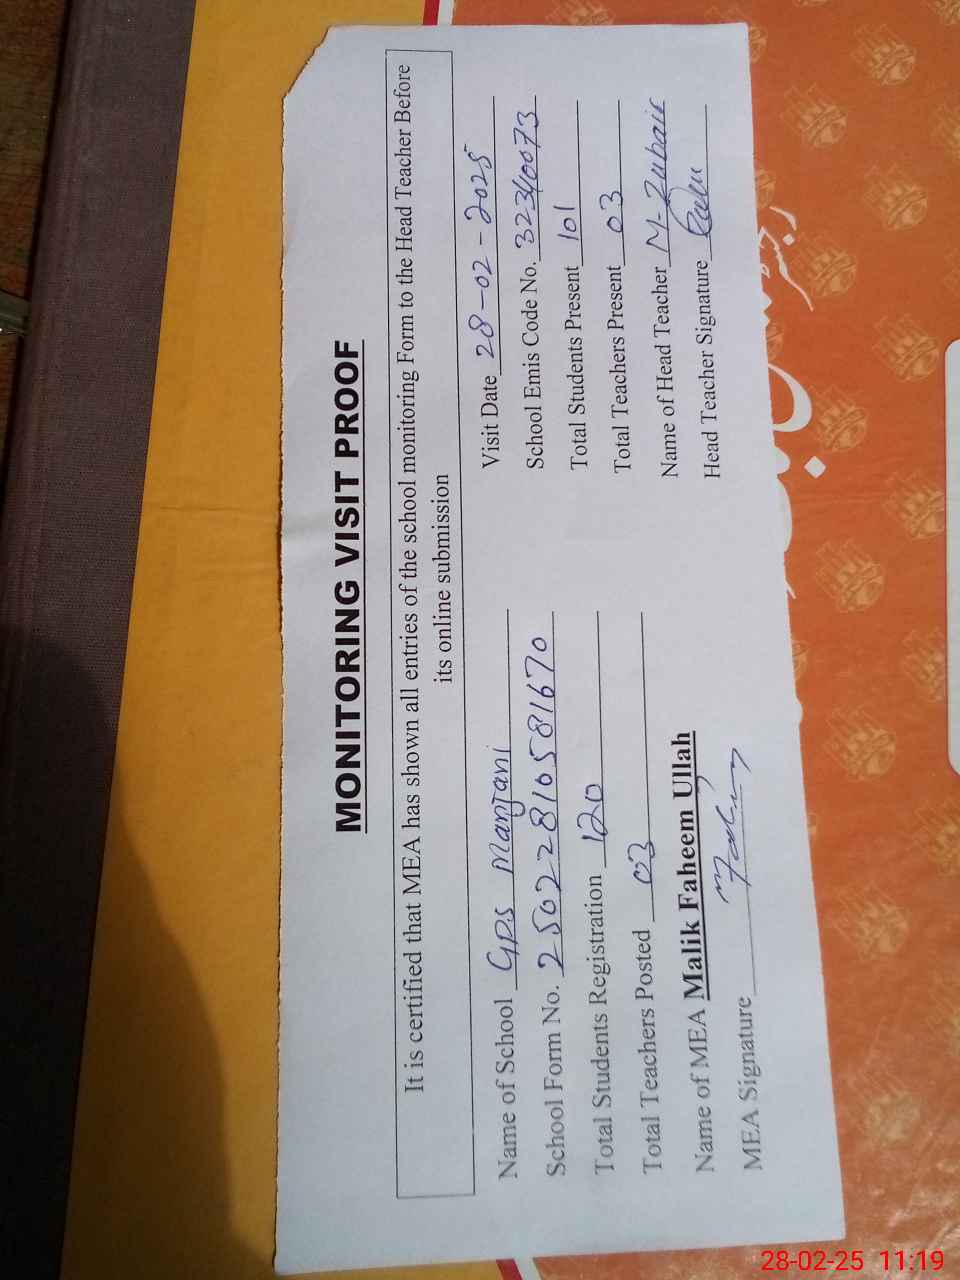 MONITORING VISIT PROOF
It is certified that MEA has shown all entries of the school monitoring Form to the Head Teacher Before
its online submission
Name of School GPS Manjani
Visit Date 28-02-2025
School Form No. 25022816581670
School Emis Code No. 32340073
Total Students Registration 120
Total Students Present 101
Total Teachers Posted 03
Total Teachers Present 03
Name of MEA Malik Faheem Ullah
Name of Head Teacher M-Zubair
MEA Signature
Head Teacher Signature
28-02-25 11:19